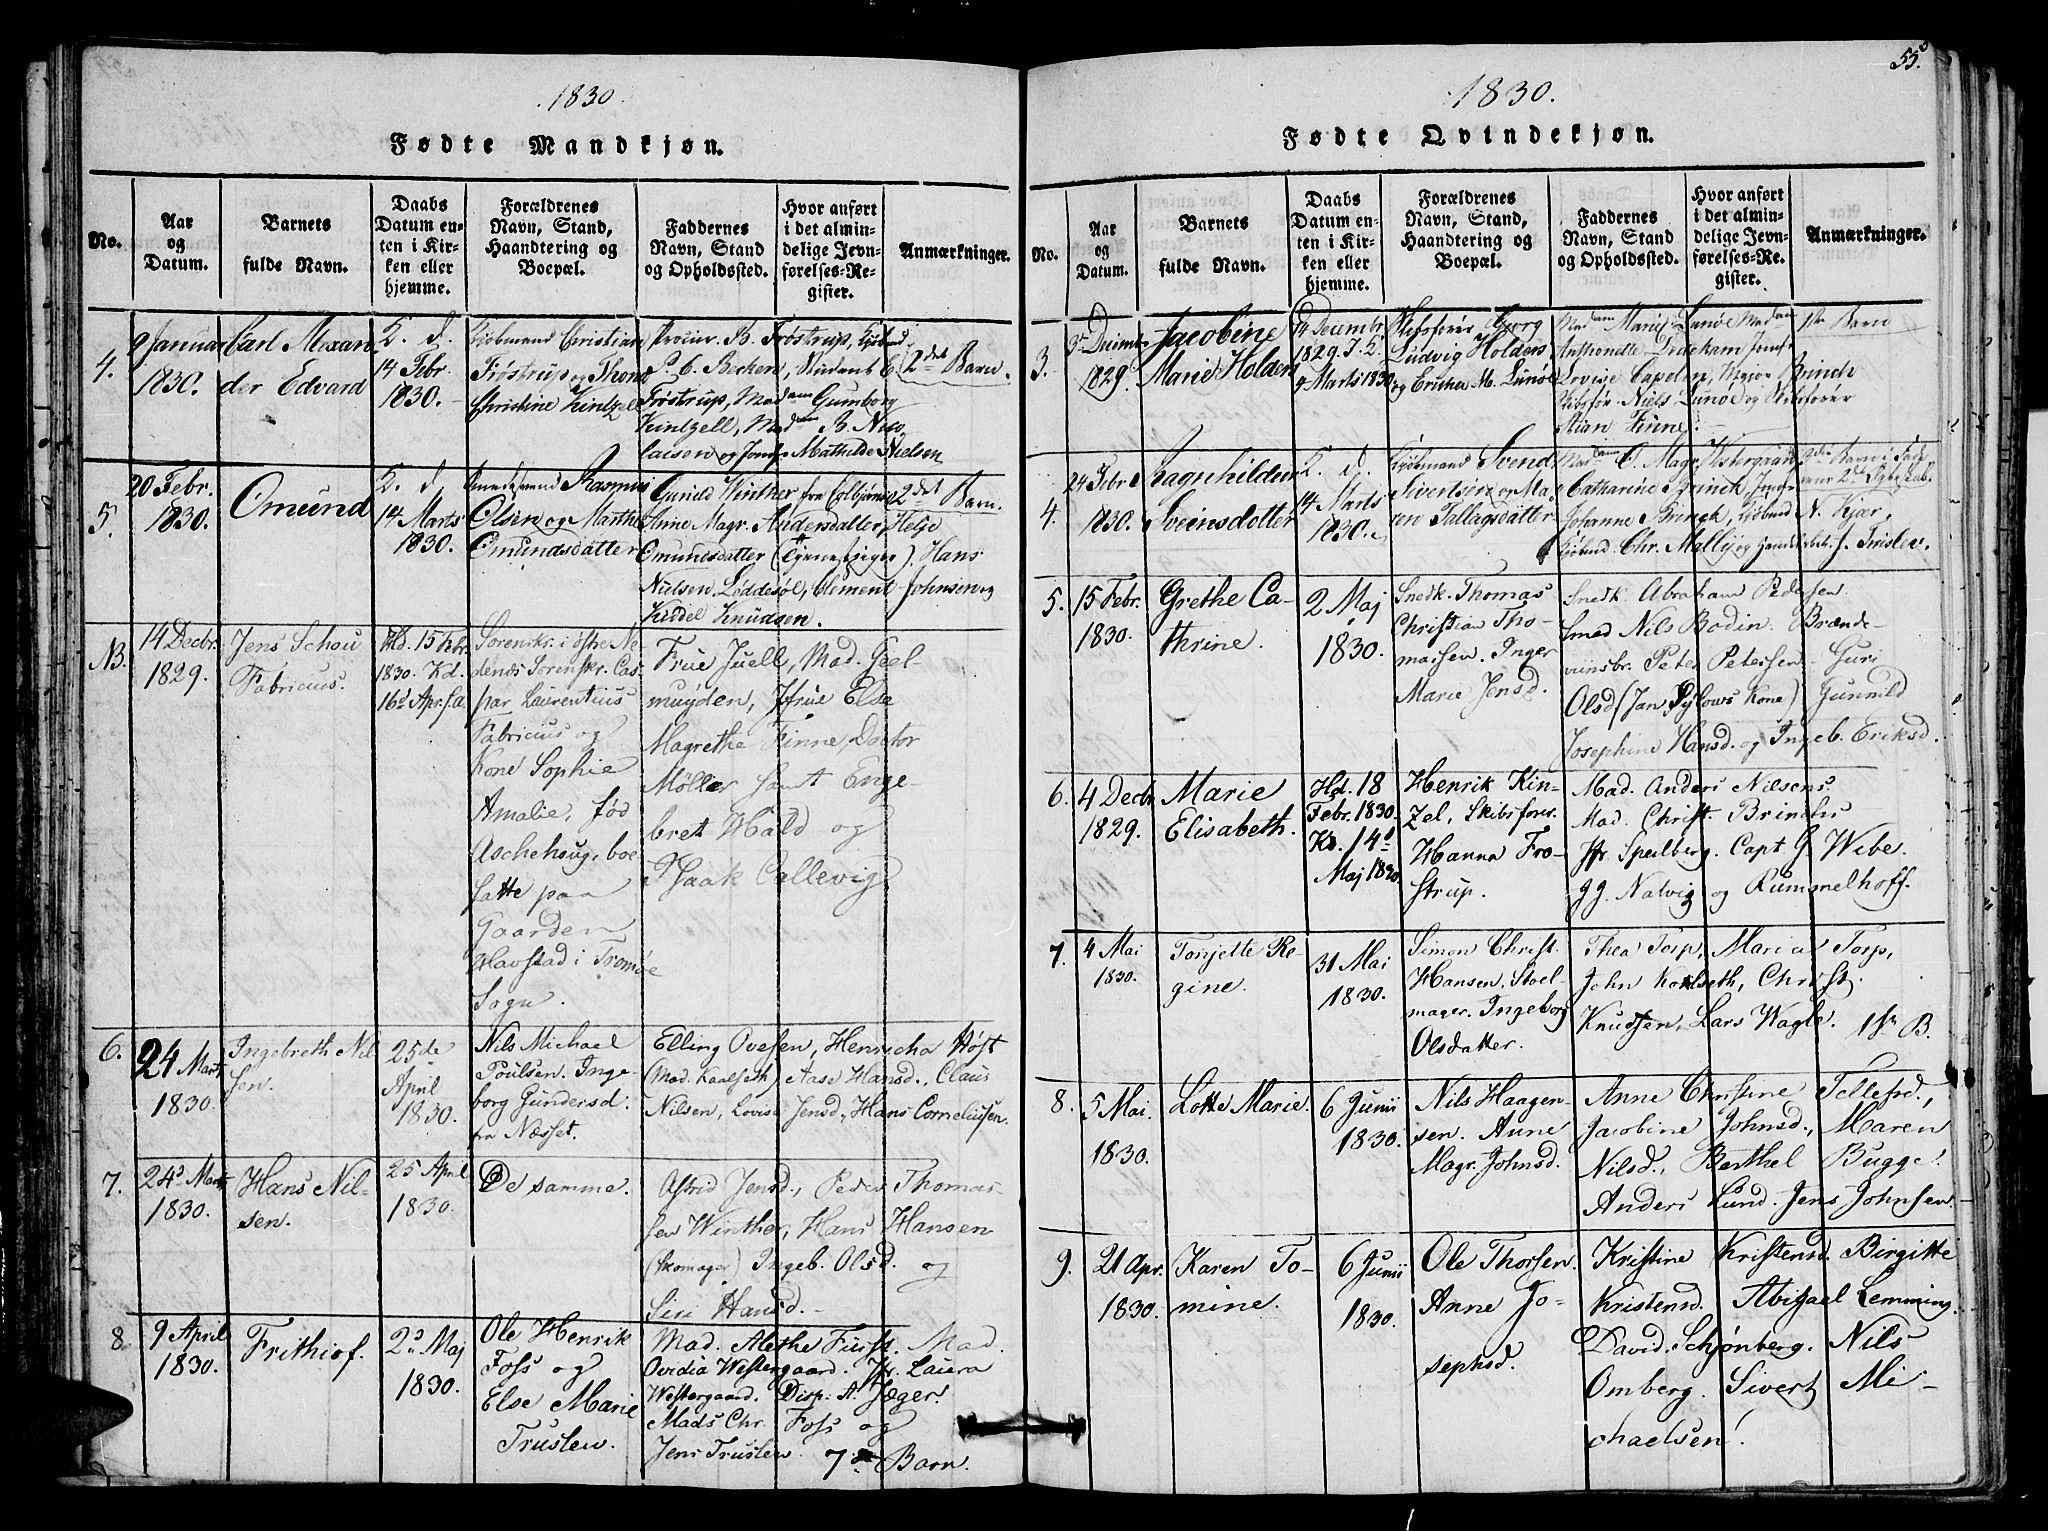 1830.
Fødte Mandkjøn.
No.
Aar
og
Datum.
Barnets
fulde Navn.
Daabs
Datum en-
ten i Kir-
ken eller
hjemme.
Forældrenes
Navn, Stand,
Haandtering og
Boepæl.
Faddernes
Navn, Stand
og Opholdssted.
Hvor anført
i det almin-
delige Jevn-
førelses-Re-
gister.
Anmærkninger.
4.
9 Januar
1830.
Carl Alexan
der Edvard
14 Febr.
1830.
Kjøbmand Christian
Frøstrup og Thom
Christine Kintzel
B. Frøstrup, Kjøbmd
P. C. Beckers, Student C.
Frøstrup, Madam Gumborg
Kintzell, Madam B. Nico
laisen og Jomf. Mathilde Nielsen
2det Barn.
5.
20 Febr.
1830.
Omund
14 Marts
1830.
Rasmus
Olsen og Marthe
Omundsdatter
Gunild Winther fra Colbjørns
Anne Magr. Andersdatter, Helje
Omundsdatter (Tjenestepiger). Hans
Nielsen Løddesøl, Clement Johnsen og
Kiddel Knudsen.
2det Barn.
NB.
14 Decbr.
1829.
Jens Schou
Fabricius.
Hd. 15 Febr.
1830. Kd.
16d Apr. s.a.
Sorenskr. i østre Ne
denes Sorenskr. Cas-
par Laurentius
Fabricius og
Kone Sophie
Amalie, fød
Aschehoug, boe
satte paa
Gaarden
Havstad i Tromøe
Sogn.
Frue Juell, Mad. Geel-
muyden, Jfrue Else
Magrethe Finne, Doctor
Møller samt Enge-
bret Hald og
Isaak Callevig
6.
24 Marts
1830.
Ingebreth Nil
sen.
25de
April
1830.
Nils Michael
Poulsen. Inge-
borg Gundersd.
fra Næsset.
Elling Ovesen, Henricha Høst
(Mad. Kaalseth) Aase Hansd., Claus
Nilsen, Lovise Jensd., Hans Corneliussen.
7.
24d Marts
1830.
Hans Nil-
sen.
25 April
1830.
De samme.
Astrid Jensd., Peder Thomas-
sen Winther, Hans Hansen
(Skomager) Ingeb. Olsd. og
Siri Hansd.
8.
9 April
1830.
Frithiof.
2d Maj
1830.
Ole Henrik
Foss og
Else Marie
Truslew.
Mad. Alethe Fürst. Mad.
Ovidia Westergaard. Jfr. Laura
Westergaard. Disp: A. Jæger.
Mads Chr. Foss og
Jens Truslew. 7de Barn.
55.
1830.
Fødte Qvindekjøn.
No.
Aar
og
Datum.
Barnets
fulde Navn.
Daabs
Datum en-
ten i Kir-
ken eller
hjemme.
Forældrenes
Navn, Stand,
Haandtering og
Boepæl.
Faddernes
Navn, Stand
og Opholdssted.
Hvor anført
i det almin-
delige Jevn-
førelses-Re-
gister.
Anmærkninger.
3.
3 Decembr
1829.
Jacobine
Marie Holders
14 Decembr
1829.
4 Marts 1830
Skibsfører Georg
Ludvig Holders
og Ericha M. Lunøe
Madam Marie Lunøe Madam
Anthonette Dedekam Jomf.
Lovise Capelen, Brinch
Skibsfør. Niels Lunøe og Skibsfører
Stian Finne.
1ste Barn
4.
24 Febr
1830.
Ragnhilden
Sveinsdotter
14 Marts
1830.
Kjøbmand Svend
Sivertsen og Ma
ren Tallagsdatter
Madam C. Magr. Westergaard
Catharine Brinck, Jomfr
Johanne Brinck, Kjøbmd N. Kjær,
Kjøbmd. Chr. Mally og J. Truslev.
5.
15 Febr.
1830.
Grethe Ca-
thrine.
2 Maj
1830.
Snedk. Thomas
Christian Tho-
massen. Inger
Marie Jensd.
Snedk. Abraham Pedersen
Smed Nils Bodin. Brænde-
viinsbr. Peter Petersen. Guri
Olsd (Jan Sylows Kone) Gunnild
Josephine Hansd. og Ingeb. Eriksd.
6.
4 Decbr
1829.
Marie
Elisabeth.
Hd. 18
Febr. 1830.
Kd. 14d
Maj 1830
Henrik Kin-
zel, Skibsfører.
Hanna Frø-
strup.
Mad. Anders Nilsens
Mad. Christ. Brinchs
Jfr. Speilberg. Capt. G. Wibe.
GG. Natvig og Rummelhoff.
7.
4 Mai
1830.
Tonjette Re-
gine.
31 Mai
1830.
Simon Christ.
Hansen, Stoel-
mager. Ingeborg
Olsdatter.
Thea Torp, Maria Torp,
John Kolseth, Christ.
Knudsen, Lars Wagle. 1ste B.
8.
5 Mai.
1830.
Lotte Marie.
6 Junii
1830.
Nils Haagen-
sen. Anne
Magr. Johnsd.
Anne Christine Tellefsd.,
Jacobine Johnsd., Maren
Nilsd., Berthel Bugge.
Anders Lund. Jens Johnsen
9.
21 Apr.
1830.
Karen To-
mine.
6 Junii
1830.
Ole Thorsen.
Anne Jo-
sephsd.
Kristine Kristensd. Birgitte
Kristensd. Abigael Lemming.
David Schjønberg. Nils
Omberg. Sivert Mi-
chaelsen.